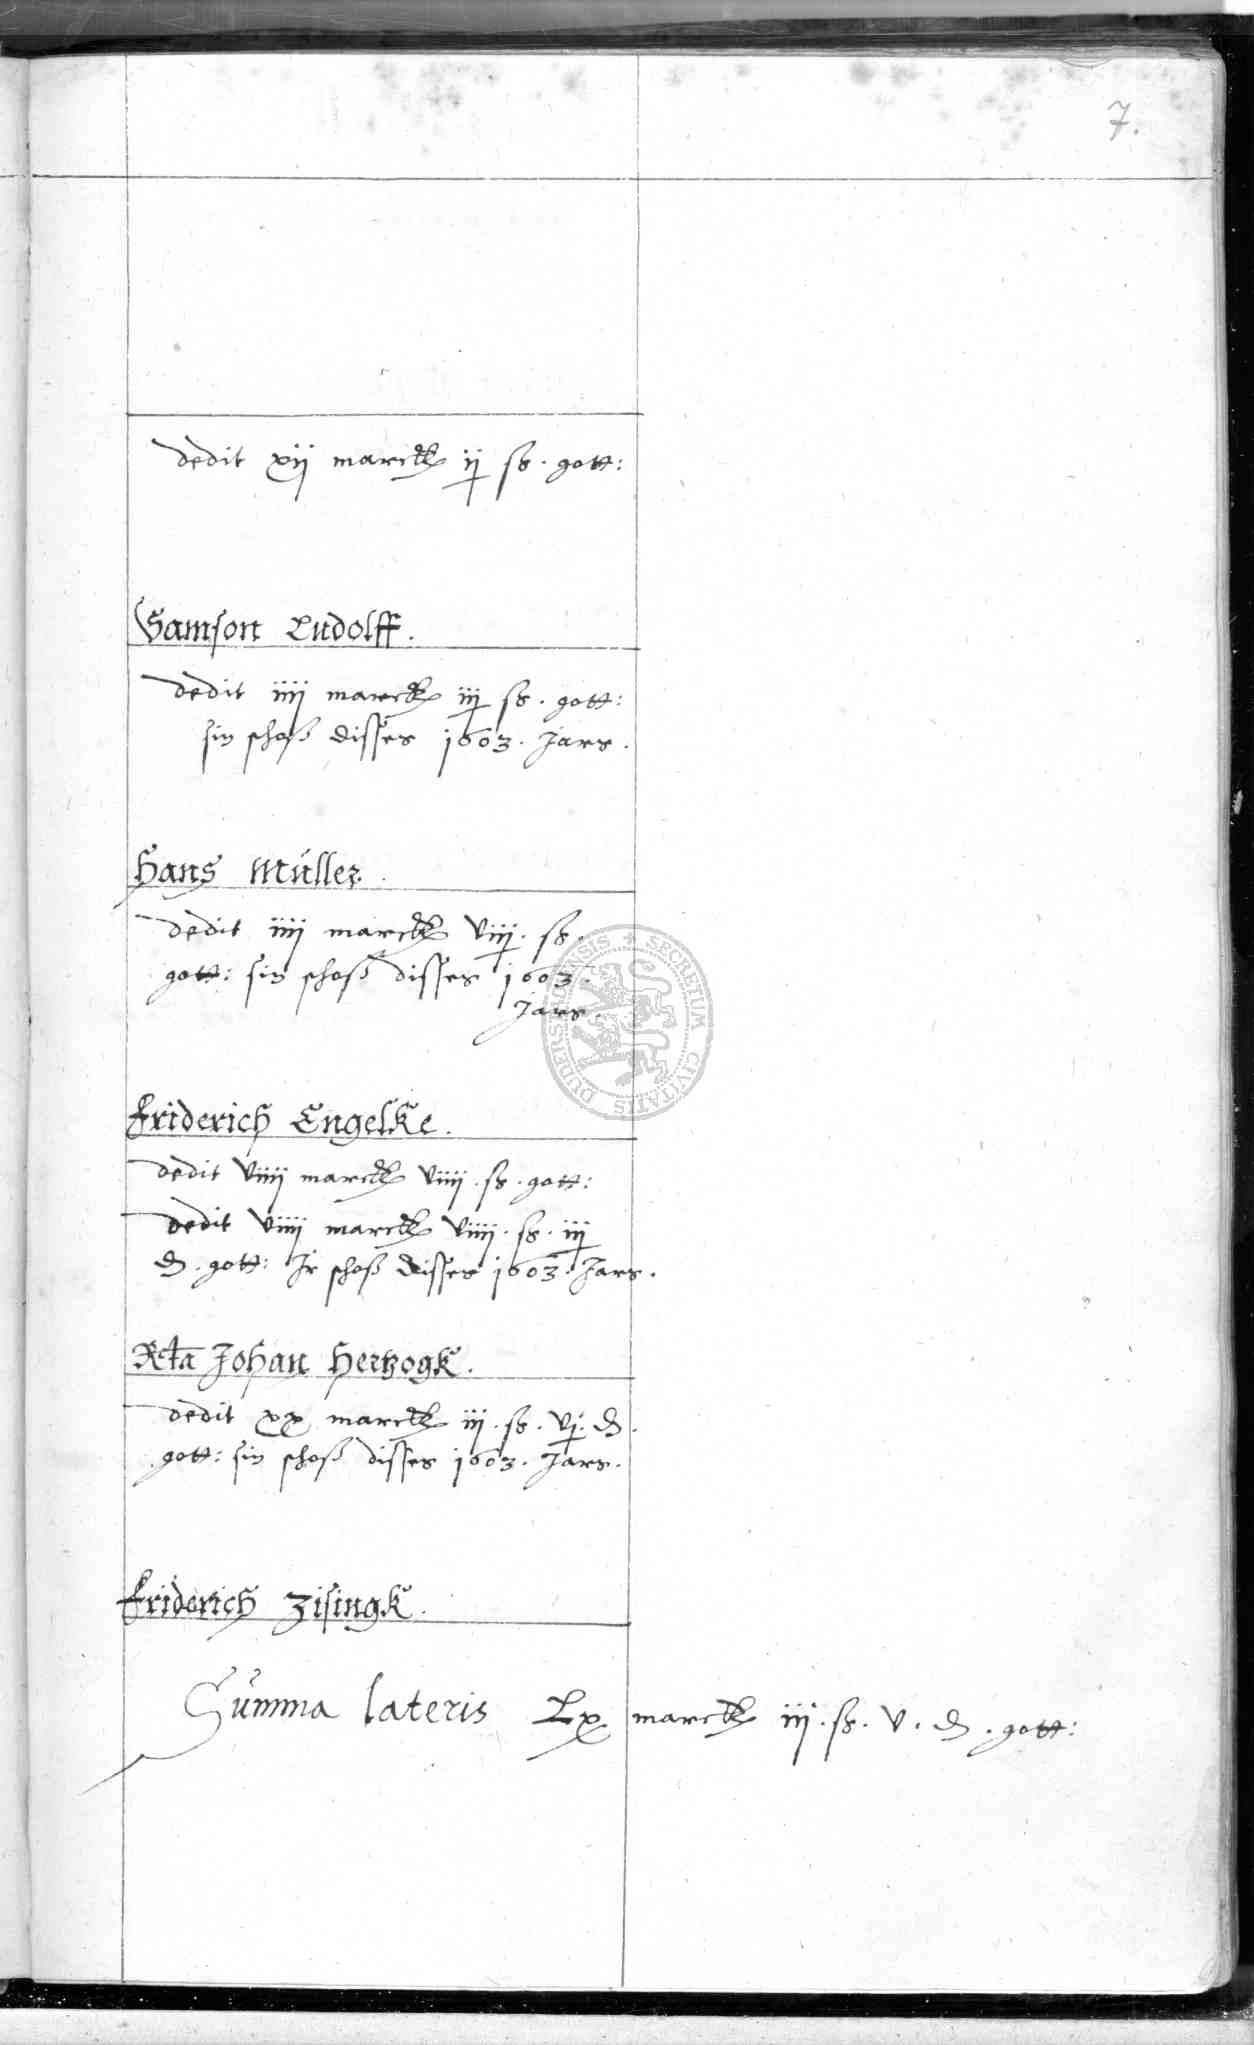 7.
dedit xij marck ij ß. gott:
Samson Ludolff.
dedit iiij marck iij ß. gott:
sin schoß disses 1603. Jars.
Hans Müller.
dedit iiij marck viij. ß.
gott: sin schoß disses 1603.
Jars.
SECRETUM CIVITATIS DUDERSTADENSIS
Friderich Engelke.
dedit viiij marck viiij. ß. gott:
dedit viiij marck viiij. ß. iij
₰. gott: Ir schoß disses 1603. Jars.
Rcta Johan Hertzogk.
dedit xx marck iij. ß. vj. ₰.
gott: sin schoß disses 1603. Jars.
Friderich Zisingk.
Summa lateris Lx marck iij. ß. v. ₰. gott: